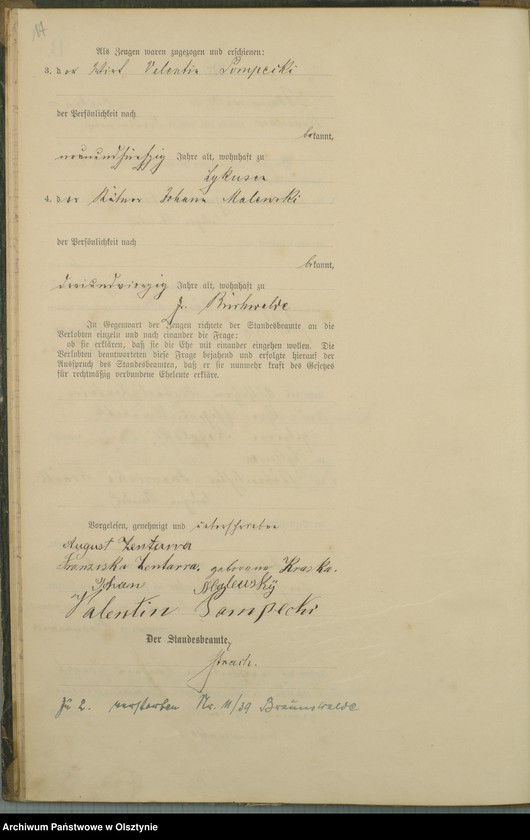 17
Als Zeugen waren zugezogen und erschienen:
3. der Wirt Valentin Sompecki
der Persönlichkeit nach
bekannt,
neunundfünfzig Jahre alt, wohnhaft zu
Lykusen
4. der Kätner Johann Malewski
der Persönlichkeit nach
bekannt,
dreiundvierzig Jahre alt, wohnhaft zu
Gr. Buchwalde
In Gegenwart der Zeugen richtete der Standesbeamte an die
Verlobten einzeln und nach einander die Frage:
ob sie erklären, daß sie die Ehe mit einander eingehen wollen. Die
Verlobten beantworteten diese Frage bejahend und erfolgte hierauf der
Ausspruch des Standesbeamten, daß er sie nunmehr kraft des Gesetzes
für rechtmäßig verbundene Eheleute erkläre.
Vorgelesen, genehmigt und unterschrieben
August Zentarra
Franziska Zentarra, geborene Kraska.
Johan Malewsky
Valentin Sompecki
Der Standesbeamte,
Zu 2. verstorben Nr. 11/39 Braunswalde
Archiwum Państwowe w Olsztynie